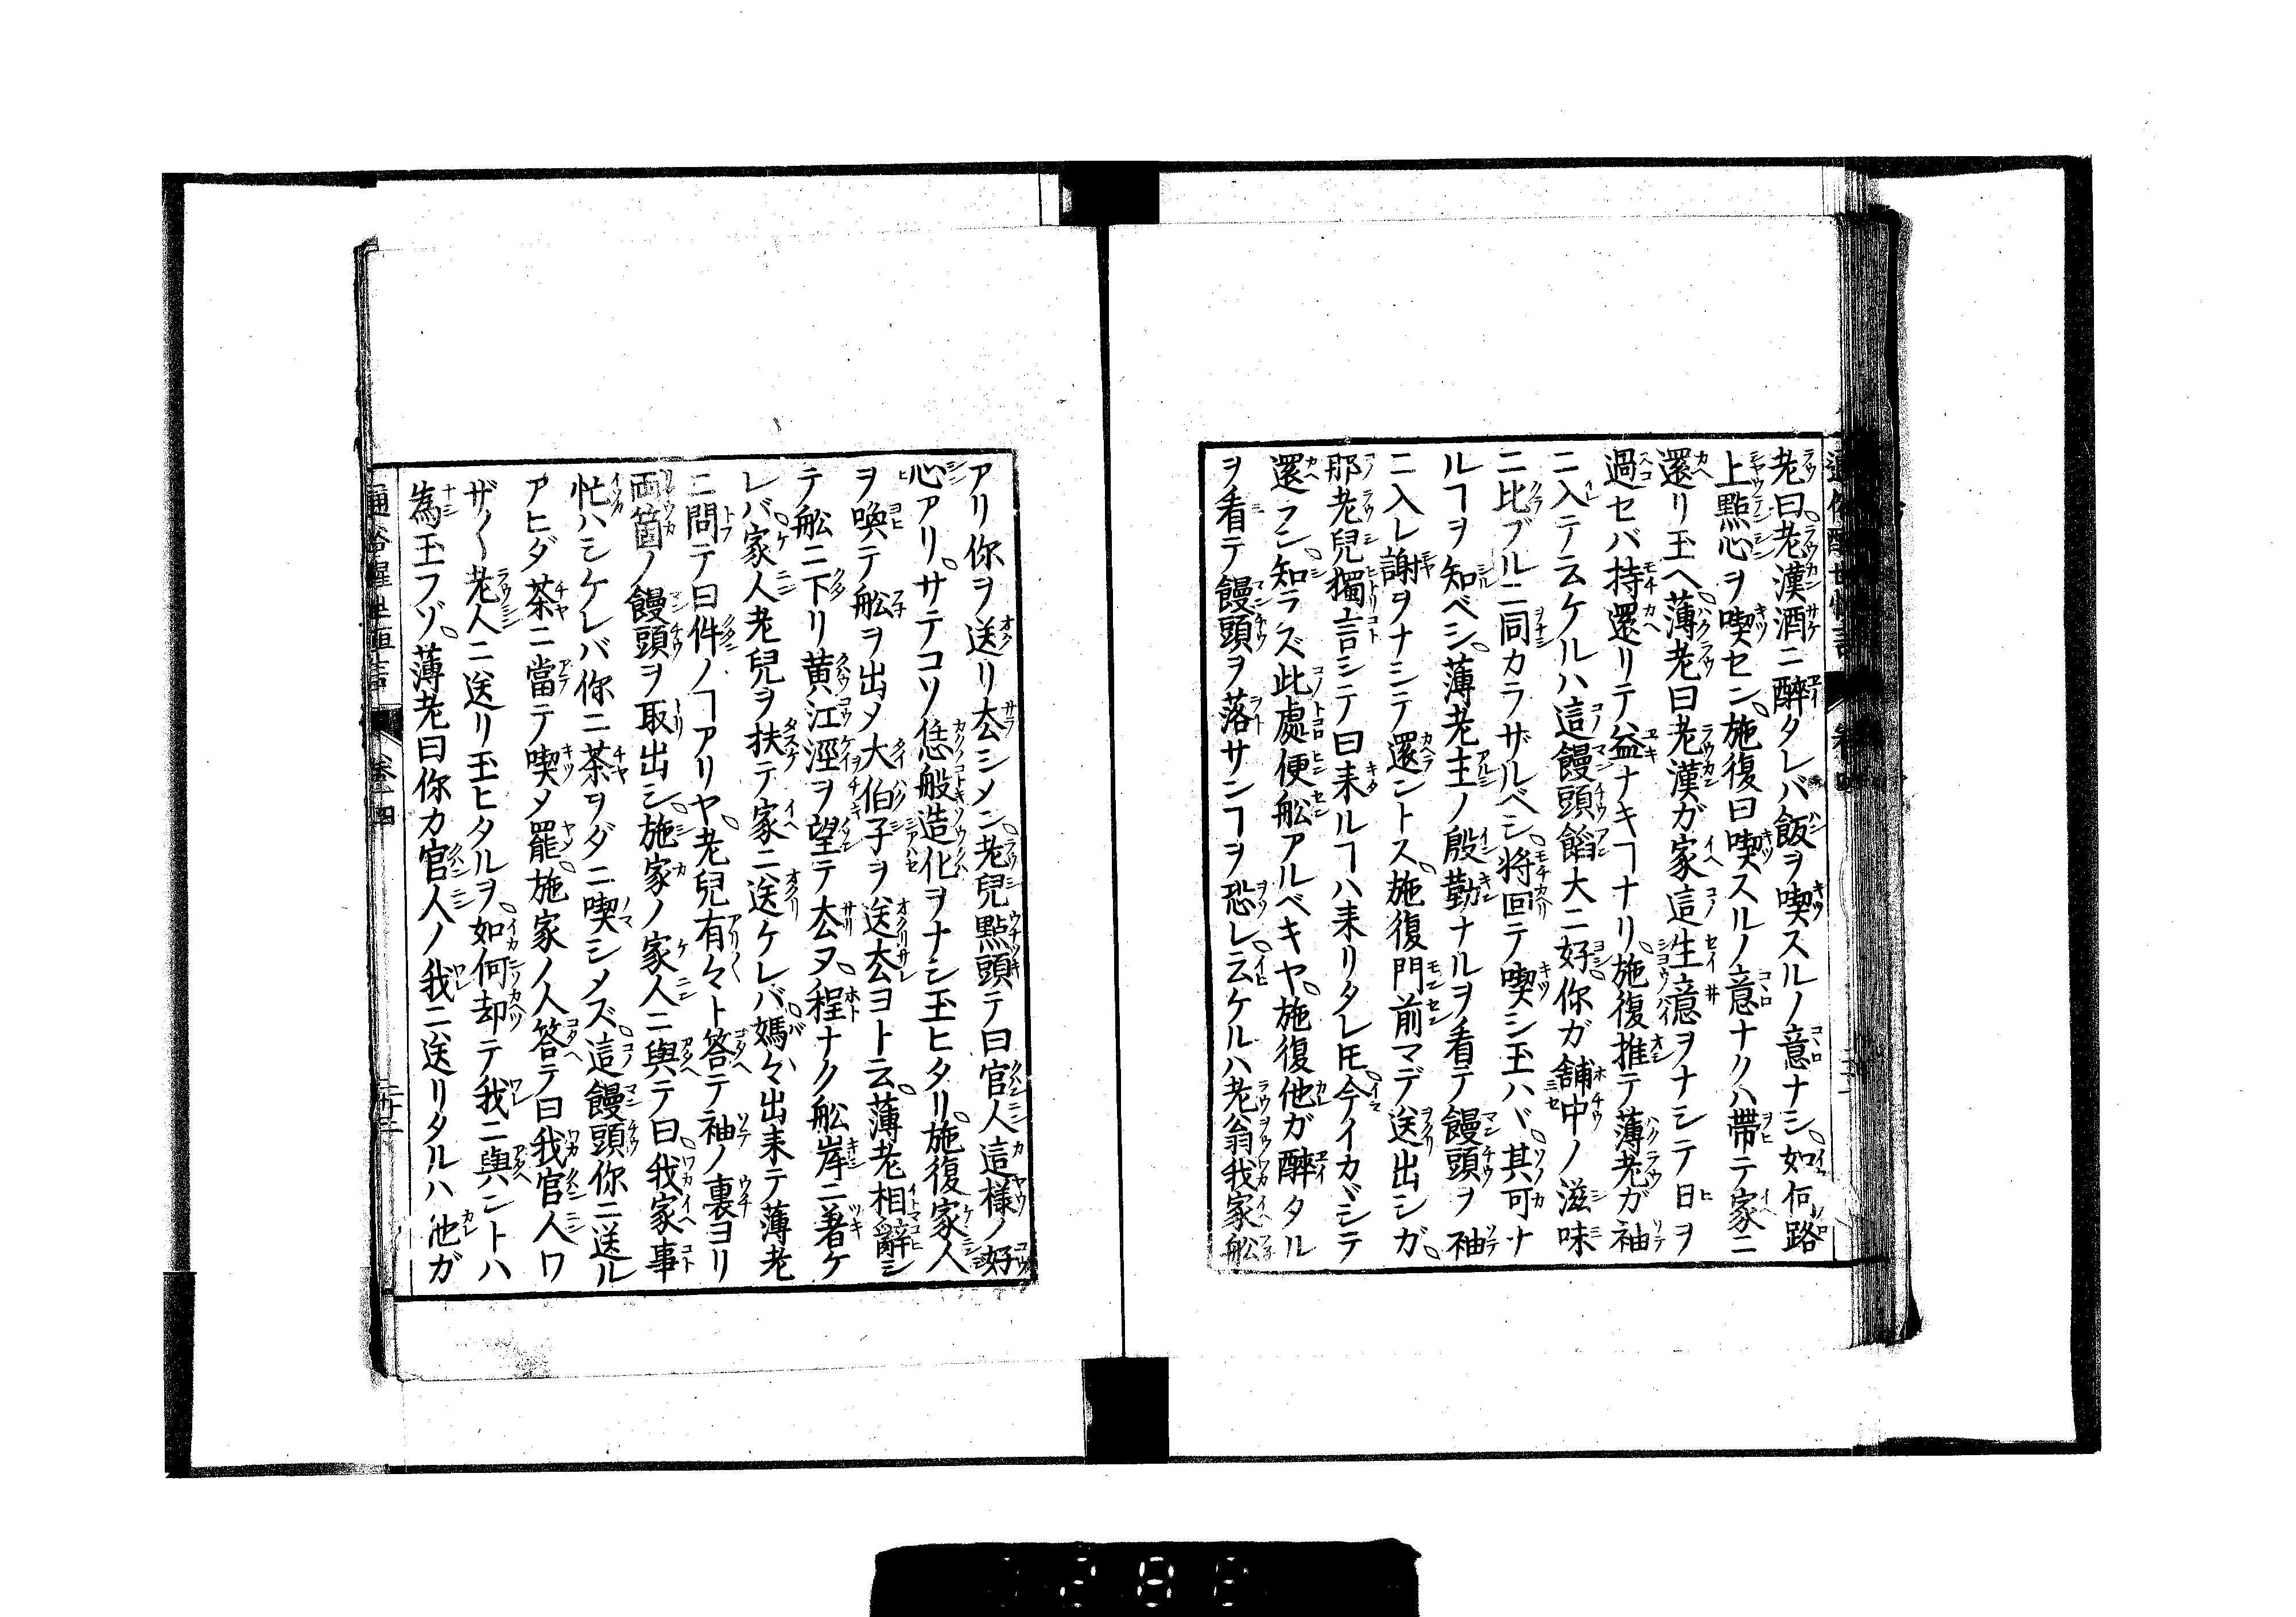 老曰老漢酒ニ醉タレバ飯ヲ喫スルノ意ナシ如何路
上點心ヲ喫セン施復曰喫スルノ意ナクハ帶テ家ニ
還リ玉ヘ薄老曰老漢ガ家這生意ヲナシテ日ヲ
過セバ持還リテ益ナキヿナリ施復推テ薄老ガ袖
ニ入テ云ケルハ這饅頭餡大ニ好你ガ舗中ノ滋味
ニ比ブルニ同カラザルベシ將回テ喫シ玉ハヾ其可ナ
ルヿヲ知ベシ薄老主ノ殷勤ナルヲ看テ饅頭ヲ袖
ニ入レ謝ヲナシテ還ントス施復門前マデ送出シガ
那老兒獨言シテ曰来ルヿハ来リタレ𪜈今イカヾシテ
還ラン知ラズ此處便舩アルベキヤ施復他ガ醉タル
ヲ看テ饅頭ヲ落サンヿヲ恐レ云ケルハ老翁我家舩
アリ你ヲ送リ厺シメン老兒點頭テ曰官人這様ノ好
心アリサテコソ恁般造化ヲナシ玉ヒタリ施復家人
ヲ喚テ舩ヲ出メ大伯子ヲ送厺ヨト云薄老相辭シ
テ舩ニ下リ黄江涇ヲ望テ厺ヌ程ナク舩岸ニ著ケ
レバ家人老兒ヲ扶テ家ニ送ケレバ媽々出来テ薄老
ニ問テ曰件ノヿアリヤ老兒有々ト答テ袖ノ裏ヨリ
両箇ノ饅頭ヲ取出シ施家ノ家人ニ與テ曰我家事
忙ハシケレバ你ニ茶ヲダニ喫シメズ這饅頭你ニ送ル
アヒダ茶ニ當テ喫メ罷施家ノ人答テ曰我官人ワ
ザ〱老人ニ送リ玉ヒタルヲ如何却テ我ニ與ントハ
為玉フゾ薄老曰你カ官人ノ我ニ送リタルハ他ガ